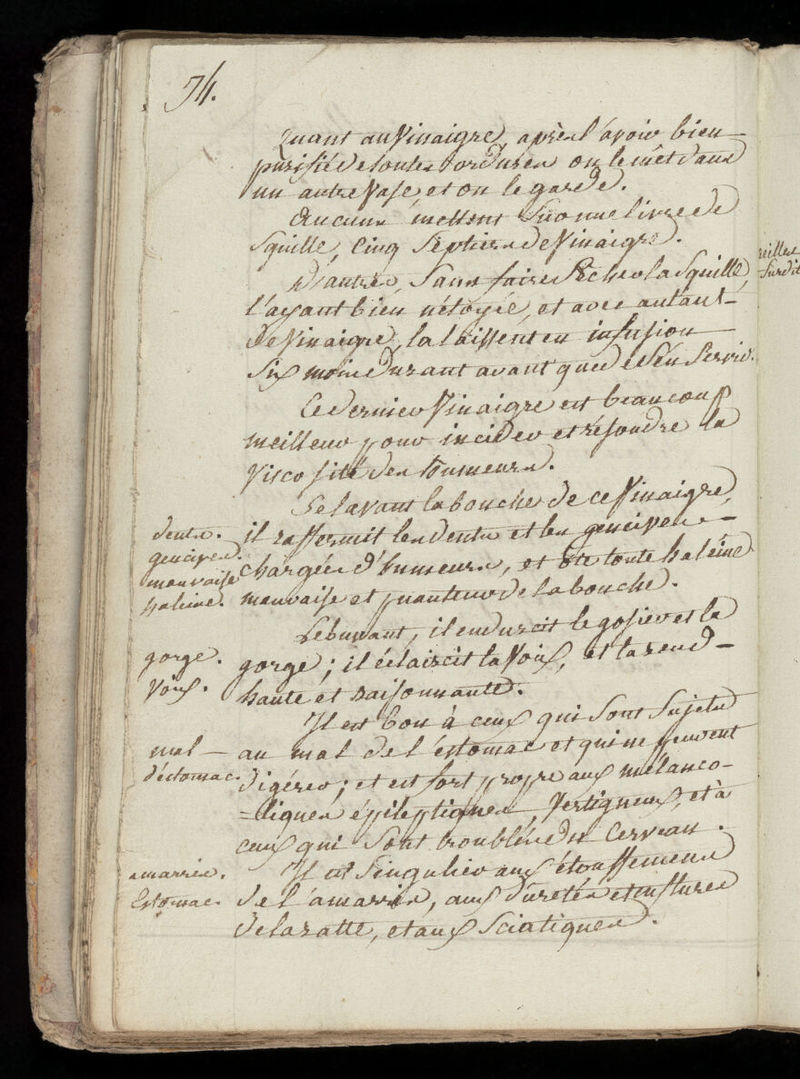 74.
Quant au Vinaigre, après l'avoir bien
purifié de toutes ordures on le mêt dans
un autre Vase et on le garde.
Aucuns mettent sur une livre de
Squille, Cinq Septiers de Vinaigre.
D'autres, Sans faire Sécher la Squille,
l'ayant bien nétoyée, et avec autant
de Vinaigre, la laissent en infusion
Six mois durant avant que de s'en Servir.
Ce dernier Vinaigre est beaucoup
meilleur pour incider et résoudre la
Viscosité des tumeurs.
Se lavant la bouche de ce Vinaigre,
dents. il raffermit les dents et les gencives
gencives. chargées d'humeurs, et ôte toute haléine
mauvaise
haleine. mauvaise et puanteur de la bouche.
Le buvant, il endurcit le gosier et la
gorge. gorge; il éclaircit la Voix, et la rend
Voix. haute et raisonnante.
Il est bon à ceux qui Sont Sujets
mal au mal de l'éstomac et qui ne peuvent
d'éstomac. digérer; et est fort propre aux mélanco-
=liques épileptiques, Vertigneux, et à
ceux qui Sont troublés du Cerveau.
amarris. Il est Singulier aux étouffemens
Estomac. de l'amarris, aux duretés et enflures
de la ratte, et aux Sciatiques.
reilles
Surdit